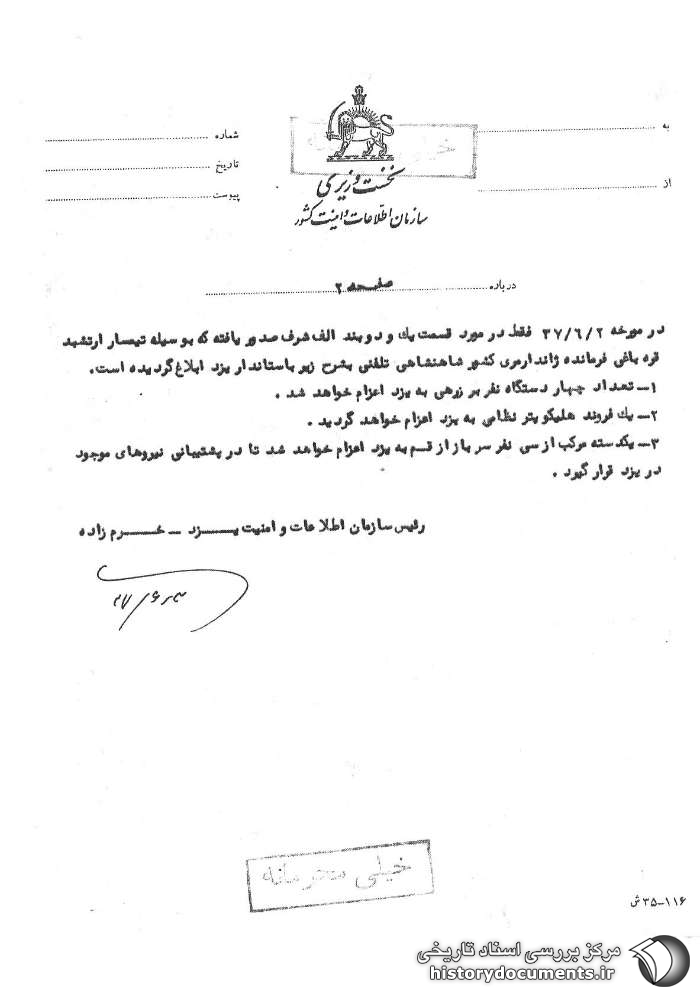 به
شماره
خیلی محرمانه
تاریخ
نخست وزیری
از
پیوست
سازمان اطلاعات و امنیت کشور
درباره صفحه ۲
در مورخه ۳۷/۶/۲ فقط در مورد قسمت یك و دو بند الف شرف صدور یافته که بوسیله تیمسار ارتشبد
قره باغی فرمانده ژاندارمری کشور شاهنشاهی تلفنی بشرح زیر باستاندار یزد ابلاغ گردیده است.
۱- تعداد چهار دستگاه نفر بر زرهی به یزد اعزام خواهد شد .
۲- یك فروند هلیکوپتر نظامی به یزد اعزام خواهد گردید .
۳- یکدسته مرکب از سی نفر سرباز از قم به یزد اعزام خواهد شد تا در پشتیبانی نیروهای موجود
در یزد قرار گیرد .
رئیس سازمان اطلاعات و امنیت یـــزد - خـــرم زاده
خیلی محرمانه
۱۱۶-۳۵ ش
مرکز بررسی اسناد تاریخی
historydocuments.ir